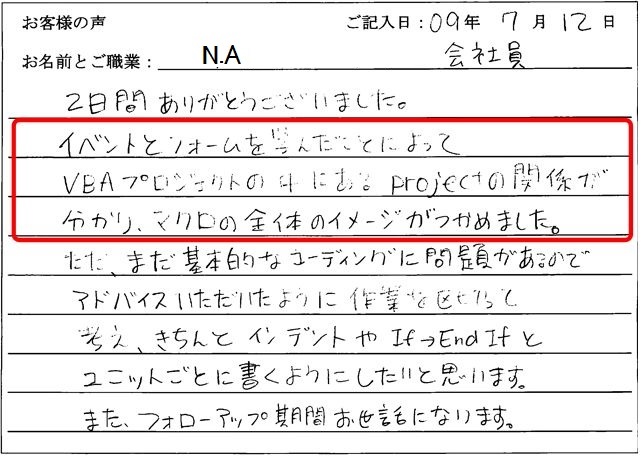 お客様の声 ご記入日：09年 7月 12日
お名前とご職業： N.A 会社員
2日間ありがとうございました。
イベントとフォームを学んだことによって
VBAプロジェクトの中にある projectの関係が
分かり、マクロの全体のイメージがつかめました。
ただ、まだ基本的なコーディングに問題があるので
アドバイスいただいたように作業を区切って
考え、きちんとインデントや If→End If と
ユニットごとに書くようにしたいと思います。
また、フォローアップ期間お世話になります。